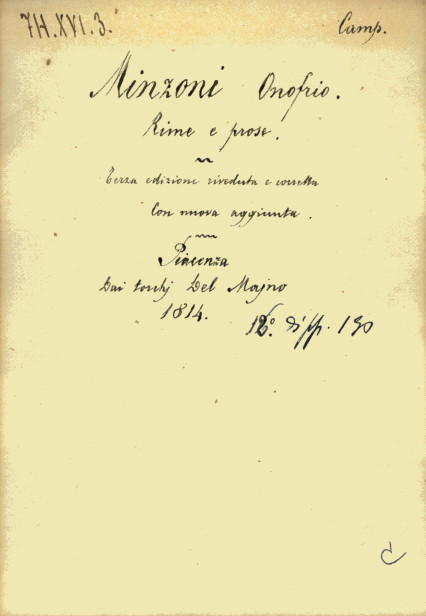 7H.XVI.3.
Camp.
Minzoni Onofrio.
Rime e prose.
Terza edizione riveduta e corretta
Con nuova aggiunta.
Piacenza
Dai torchj Del Majno
1814. di pp. 190